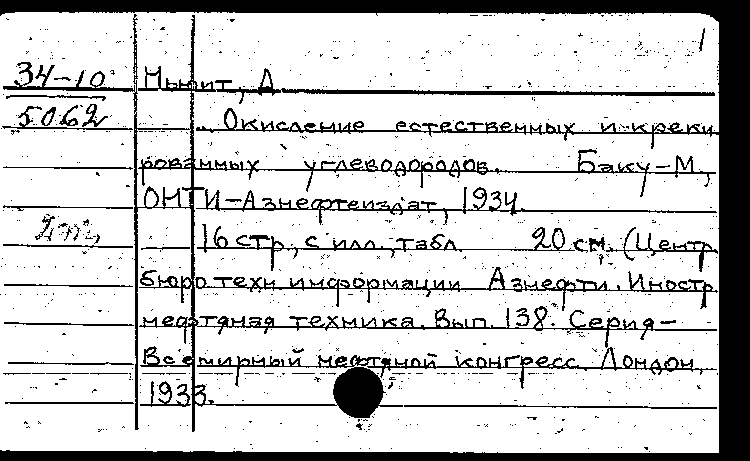 1
34-10 Ньюит, Д.
5062 Окисление естественных и креки
рованных углеводородов. Баку-М.,
ОНТИ-Азнефтеиздат, 1934.
16 стр., с илл., табл. 20 см. (Центр.
бюро техн. информации Азнефти. Иностр.
нефтяная техника. Вып. 138. Серия-
Всемирный нефтяной конгресс. Лондон,
1933.